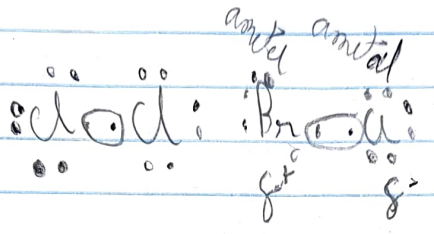 ametal ametal
:Cl : Cl: :Br : Cl:
δ+ δ-